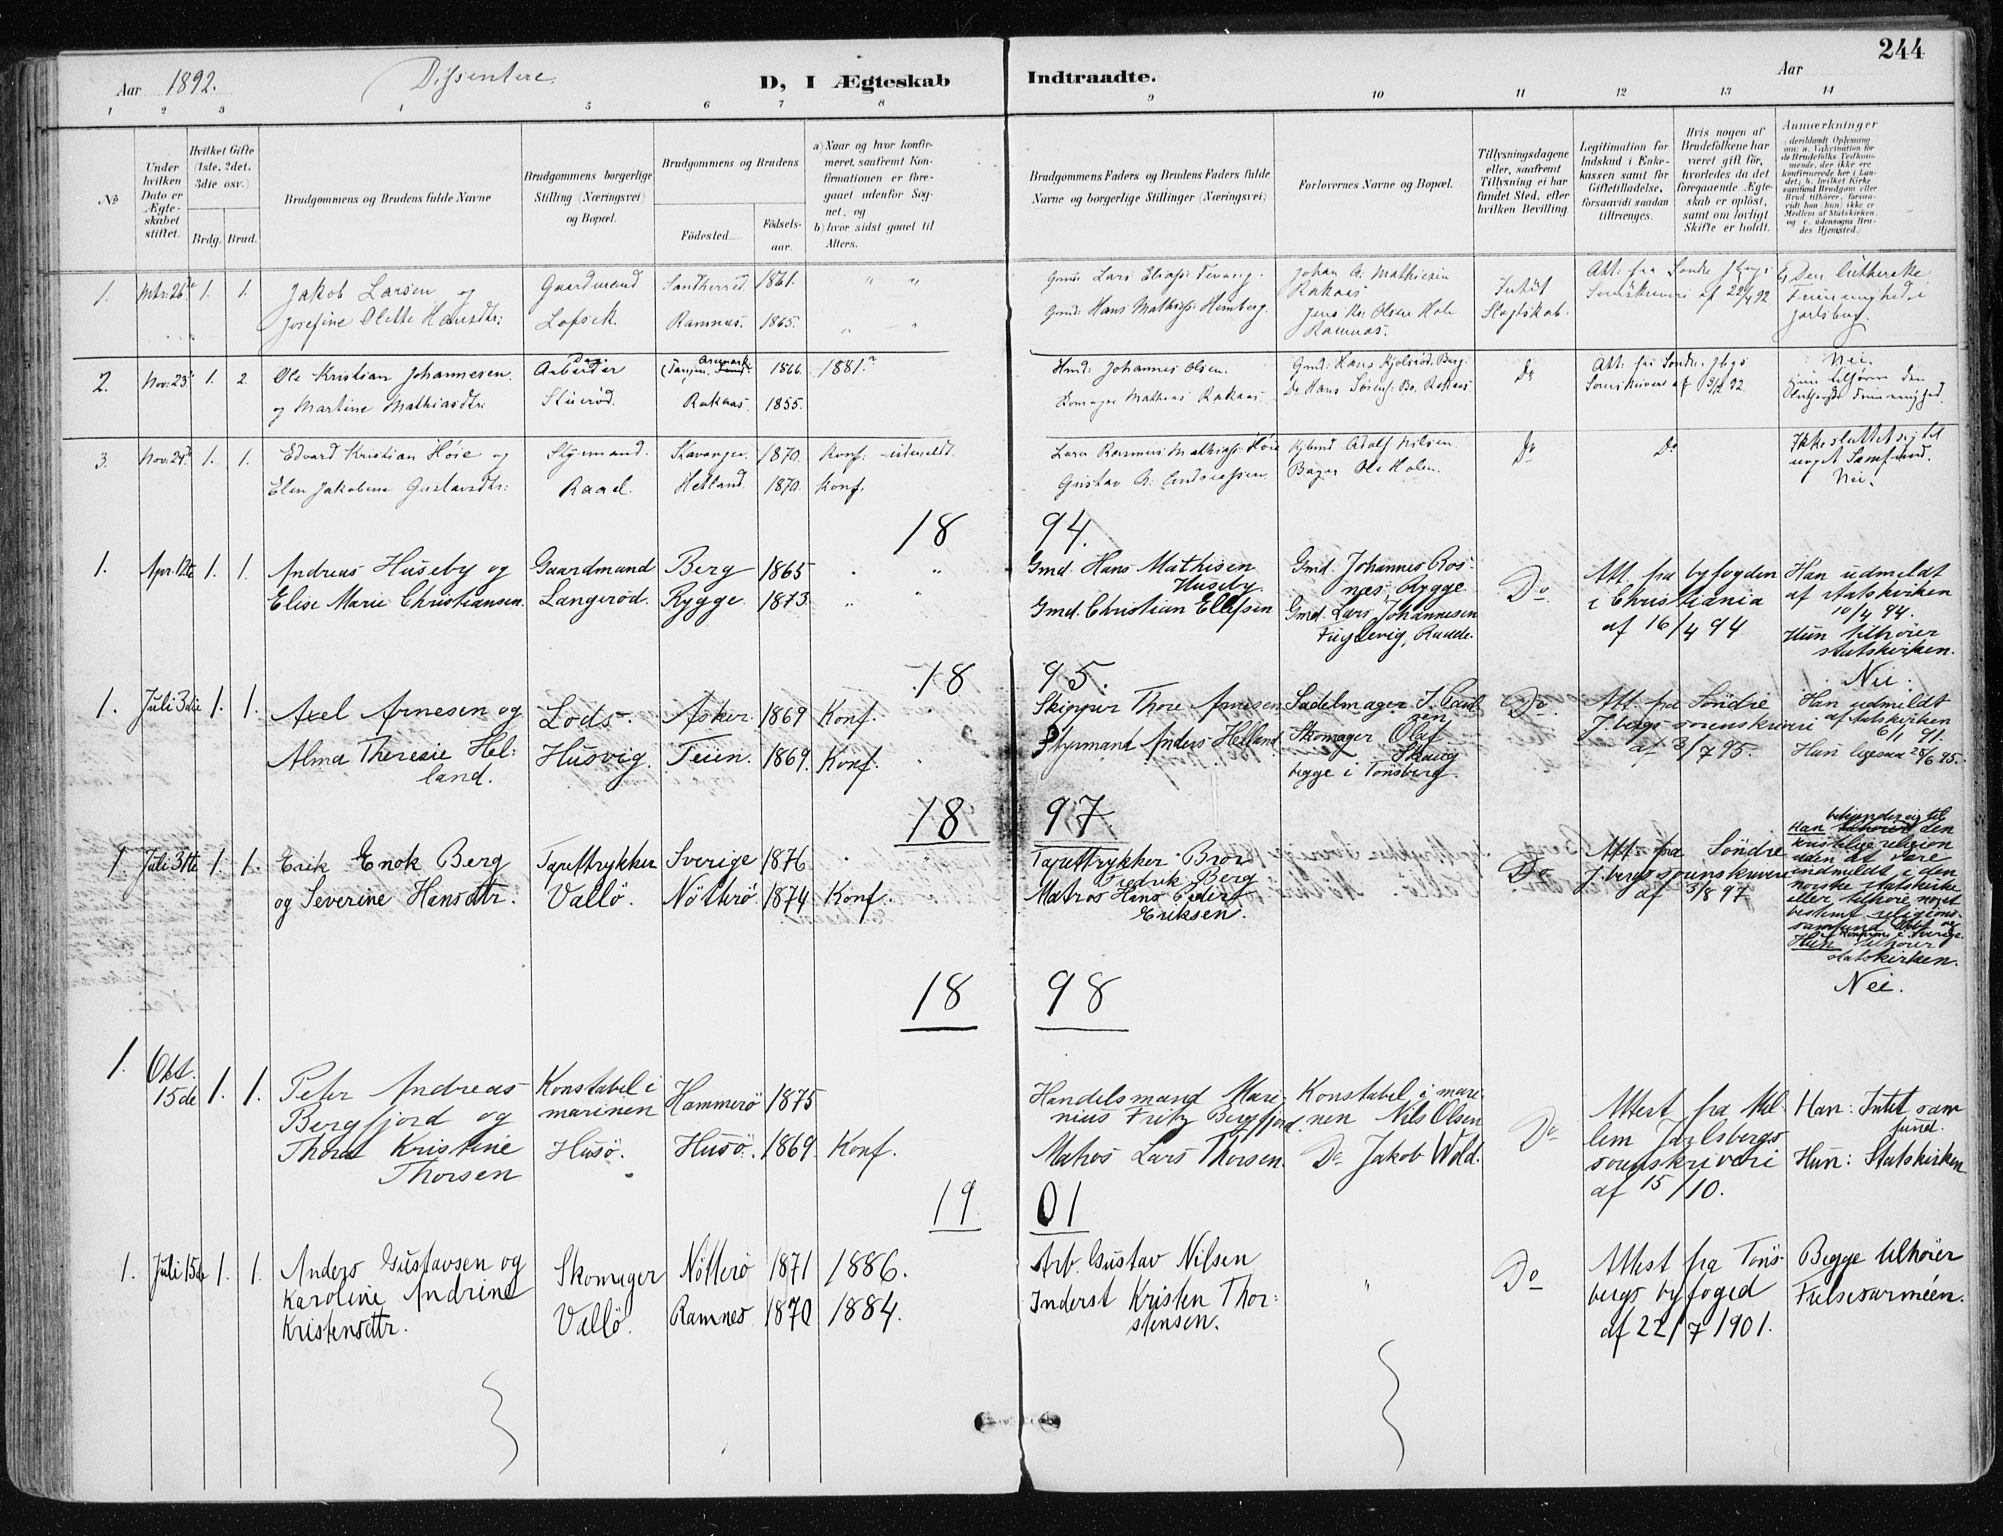 244
Aar 1892. Dissentere. D, I Ægteskab Indtraadte. Aar
1 2 3 4 5 6 7 8 9 10 11 12 13 14
№
Under hvilken Dato er Ægteskabet stiftet.
Hvilket Gifte (1ste, 2det, 3die osv.)
Brdg. Brud.
Brudgommens og Brudens fulde Navne
Brudgommens borgerlige Stilling (Næringsvei) og Bopæl.
Brudgommens og Brudens
Födested. Födselsaar.
a) Naar og hvor konfirmeret, saafremt Konfirmationen er foregaaet udenfor Sognet, og
b) hvor sidst gaaet til Alters.
Brudgommens Faders og Brudens Faders fulde Navne og borgerlige Stillinger (Næringsvei)
Forlovernes Navne og Bopæl.
Tillysningsdagene eller, saafremt Tillysning ei har fundet Sted, efter hvilken Bevilling.
Legitimation for Indskud i Enkekassen samt for Giftetilladelse, forsaavidt saadan tiltrænges.
Hvis nogen af Brudefolkene har været gift för, hvorledes da det foregaaende Ægteskab er oplöst, samt om lovligt Skifte er holdt.
Anmærkninger (deriblandt Oplysning om: a. Vakcination for de Brudefolks Vedkommende, der ikke ere konfirmerede her i Landet; b. hvilket Kirkesamfund Brudgom eller Brud tilhörer, forsaavidt han (hun) ikke er Medlem af Statskirken, og c. udensogns Brudes Hjemsted.)
1. 1. 1. Jakob Larsen og Gaardmand Sandherred 1861. " " Gmd. Lars Johan A. Mathisen Intet Att. fra Søndre Jbergs Den lutherske
Josefine Olette Hansdtr: Ramnæs. 1865. " " Gmd. Hans Mathiss. Rakaas Slægtskab. Sorenskriveri af 22/4 92. Frimenighed i
Jens Kr. Olsen Ramnæs. Jarlsberg.
2. Nov. 23. 1. 2. Ole Kristian Johannesen Arbeider 1866. 1881. Johannes Olsen. Gmd: Hans Do Att. fra Søndre Jbgs Nei.
og Martine Mathiasdtr: Rakaas. 1855. Mathias Rakaas. Do Hans Rakaas Sorenskriveri af 92. Frimenighed.
3. Nov. 1. 1. Edvard Kristian Høie og Styrmand. Stavanger. 1870. Konf. udmeldt. Rasmus Mathiass. Høie Adolf Nilsen Do Do Ikke sluttet sig til
Elen Jakobine Gustavsdtr: Raad. Hetland. 1870. Konf. Gustav A. Andreassen. Bager Ole Holm. noget Samfund.
Nei.
18 94.
1. Apr. 12te 1. 1. Andreas Huseby og Gaardmand Berg 1865 " " Gmd. Hans Mathisen Gmd. Johannes Ros- Do. Att. fra byfogden Han udmeldt
Elise Marie Christiansen. Langerød. Rygge. 1873. " " Huseby nes, Rygge i Christiania af statskirken
Gmd. Christian Ellefsen Gmd. Lars Johannesen af 16/4 94 10/4 94.
Fuglevig, Raade. Hun tilhører
statskirken.
Nei.
18 95.
1. Juli 3die 1. 1. Axel Arnesen og Lods. Asker. 1869 Konf. " Skipper Thore Arnesen Sadelmager I. Do. Att. fra Søndre Han udmeldt
Alma Therese Hel- Husvig. Teien. 1869. Konf. Styrmand Anders Helland. Skomager Olaf J.bergs sorenskriveri af statskirken
land. Skaug af 3/7 95. 6/1 91.
begge i Tønsberg. Hun ligesaa 28/6 95.
18 97
1. Juli 31te 1. 1. Erik Enok Berg Tapettrykker Sverige 1876 " Tapettrykker Bror Do Att. fra Söndre bekjender sig til
og Severine Hansdtr. Vallö. Nötterö 1874 Konf. Fredrik Berg J.bergs sorenskriveri Han tilhører den
Matros Hans Peder af 3/8 97. kristelige religion
Eriksen. uden at være
indmeldt i den
norske statskirke
eller tilhøre noget
bestemt religions-
samfund Døbt og
konfirm. i Sverige.
Hun tilhører
statskirken.
Nei.
18 98
1. Okt. 15de 1. 1. Peter Andreas Konstabel i Hammerö 1875 Handelsmand Mari- Konstabel i mari- Do Attest fra Mel- Han: Intet sam-
Bergfjord og marinen nius Fritz Bergfjord. nen Nils Olsen lem Jarlsbergs fund.
Thora Kristine Husö. Husö. 1869. Konf. Matros Lars Thorsen. Do Jakob Wold. sorenskriveri Hun: Statskirken
Thorsen af 15/10.
19 01
1. Juli 15de 1. 1. Anders Gustavsen og Skomager Nötterö 1871 1886. Arb. Gustav Nilsen " Do Attest fra Töns- Begge tilhöier
Karoline Andrine Vallö. Ramnes 1870 1884. Inderst Kristen Thor- bergs byfoged Frelsesarméen.
Kristensdtr. stensen. af 22/7 1901.